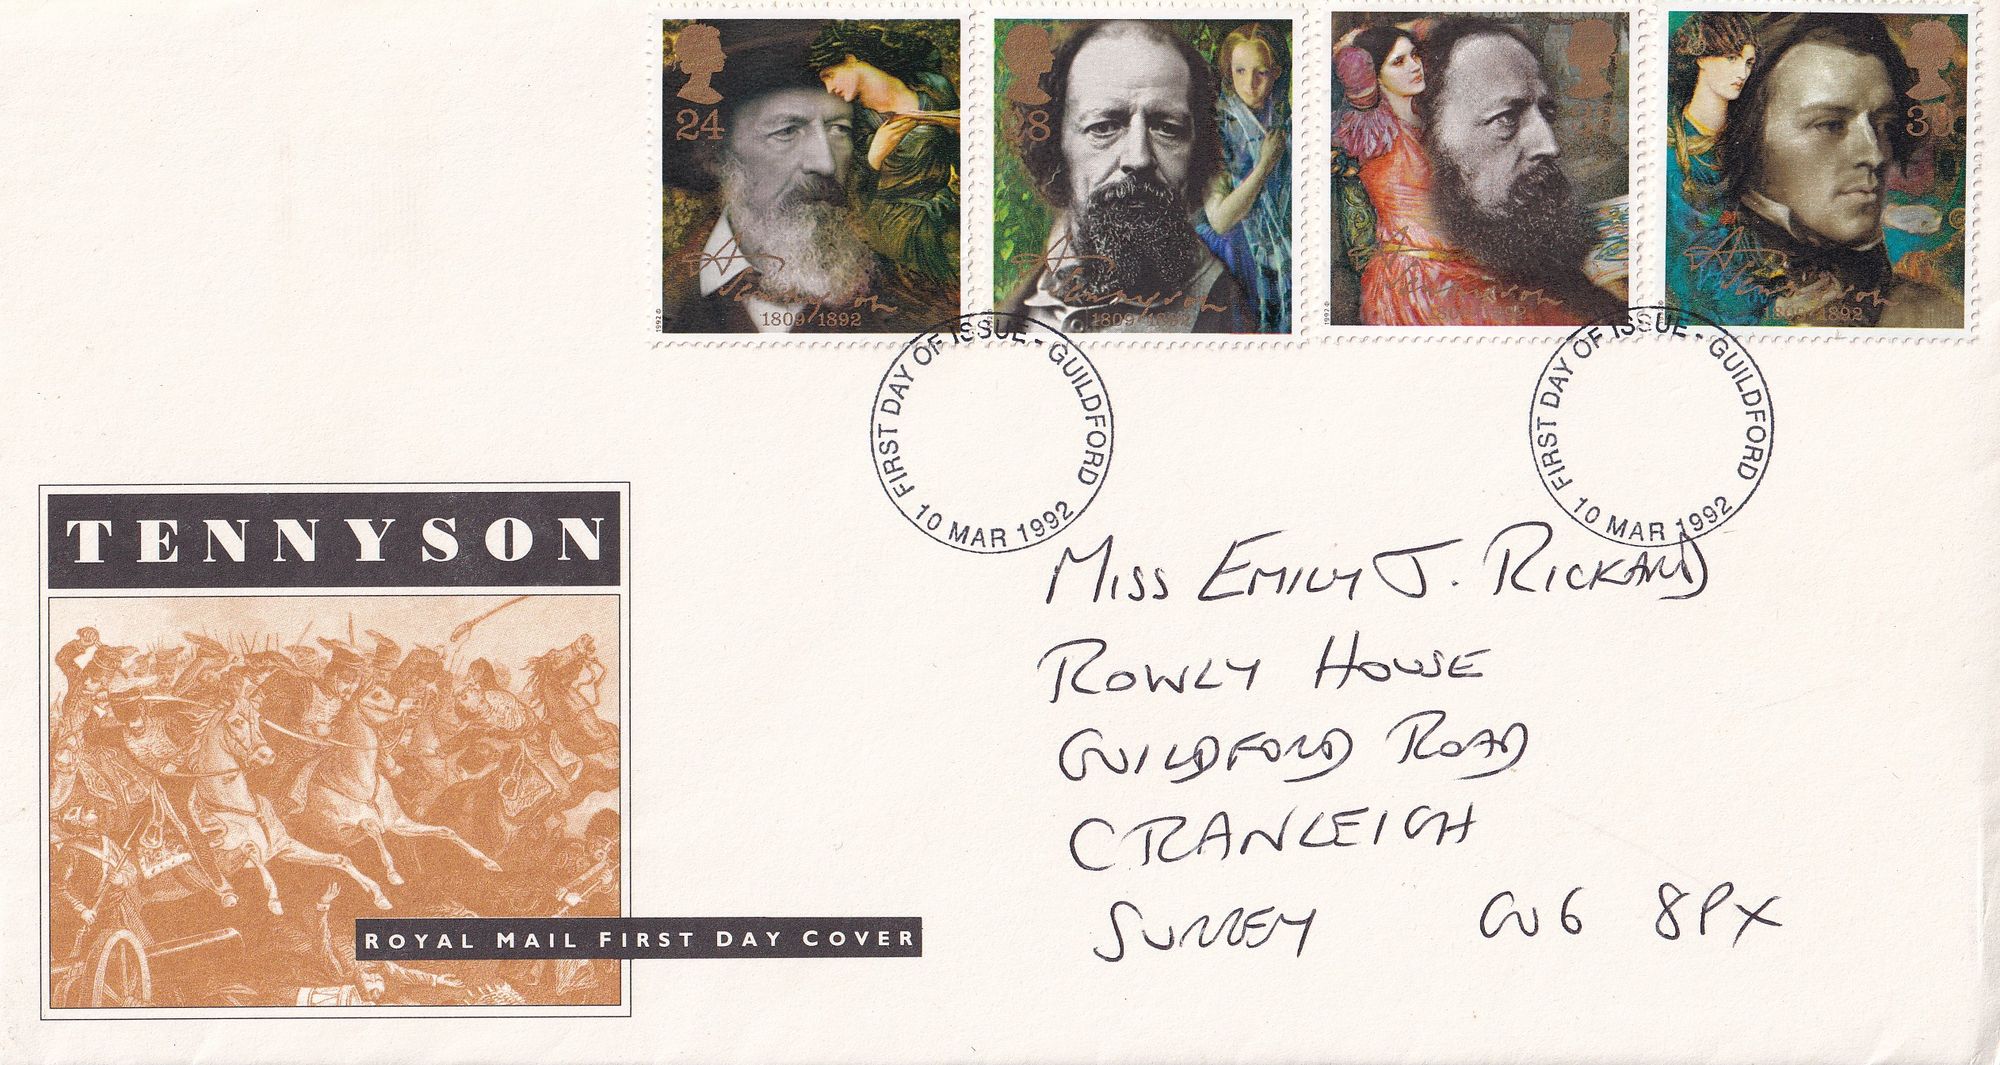 24
A Tennyson
1809 1892
1992 ©
28
A Tennyson
1809 1892
A Tennyson
1809 1892
1992 ©
A Tennyson
1809 1892
FIRST DAY OF ISSUE - GUILDFORD
10 MAR 1992
FIRST DAY OF ISSUE - GUILDFORD
10 MAR 1992
TENNYSON
ROYAL MAIL FIRST DAY COVER
MISS EMILY J. RICKARD
ROWLY HOUSE
GUILDFORD ROAD
CRANLEIGH
SURREY GU6 8PX